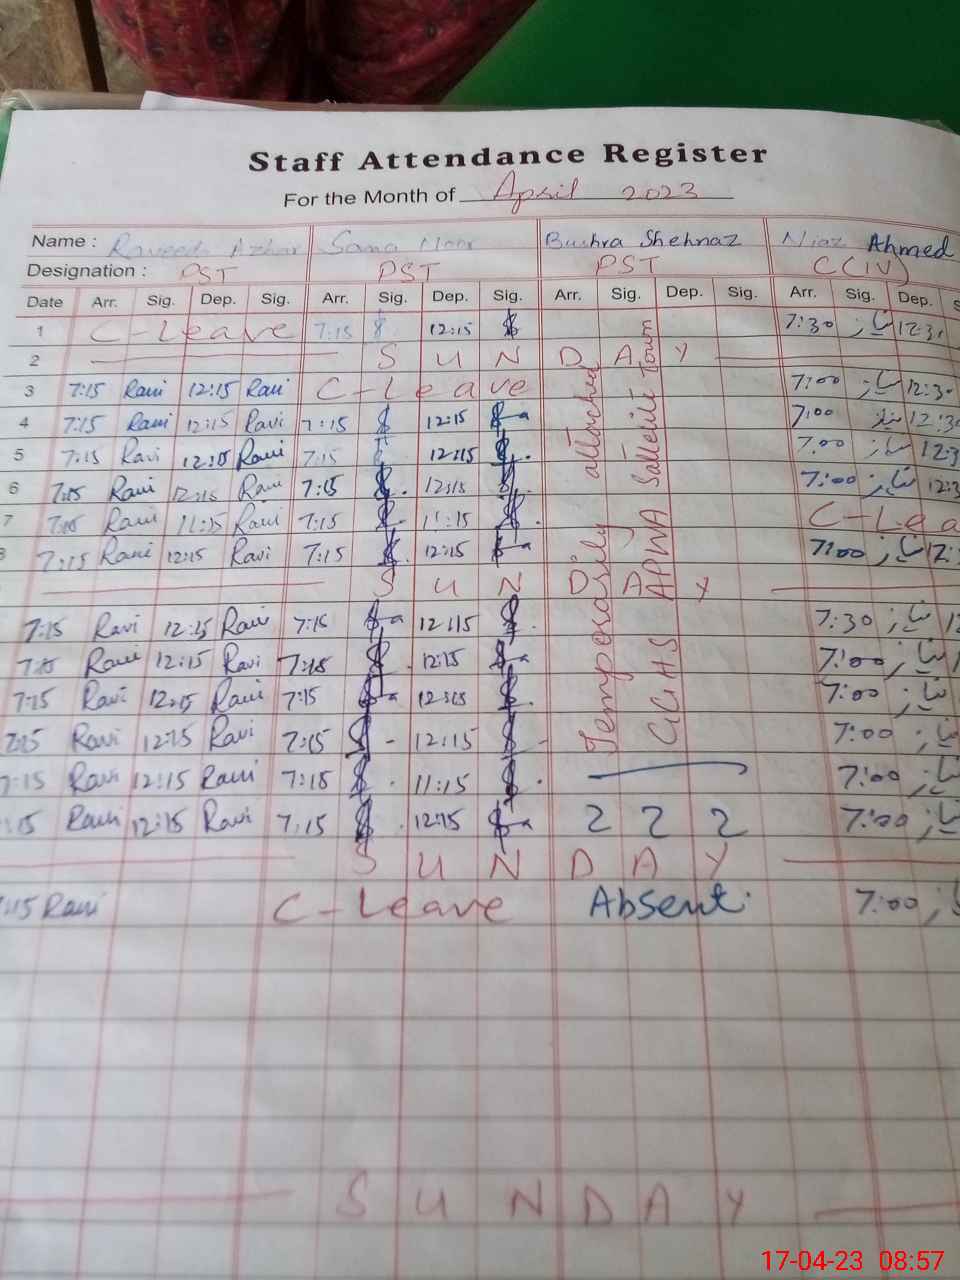 Staff Attendance Register
For the Month of April 2023
Name : Raveed Azhar Sana Noor Bushra Shehnaz Niaz Ahmed
Designation : PST PST PST C(IV)
Date Arr. Sig. Dep. Sig. Arr. Sig. Dep. Sig. Arr. Sig. Dep. Sig. Arr. Sig. Dep. S
1 C-Leave 7:15 12:15 7:30 نیاز 12:30
2 S U N D A Y
3 7:15 Ravi 12:15 Ravi C-Leave 7:00 نیاز 12:30
4 7:15 Ravi 12:15 Ravi 7:15 12:15 7:00 نیاز 12:30
5 7:15 Ravi 12:15 Ravi 7:15 12:15 7:00 نیاز 12:3
6 7:15 Ravi 12:15 Ravi 7:15 12:15 7:00 نیاز 12:3
7 7:15 Ravi 11:15 Ravi 7:15 11:15 C-Lea
8 7:15 Ravi 12:15 Ravi 7:15 12:15 7:00 نیاز 12:
S U N D A Y
7:15 Ravi 12:15 Ravi 7:15 12:15 7:30 نیاز 12
7:15 Ravi 12:15 Ravi 7:15 12:15 7:00 نیاز 1
7:15 Ravi 12:15 Ravi 7:15 12:15 7:00
7:15 Ravi 12:15 Ravi 7:15 12:15 7:00
7:15 Ravi 12:15 Ravi 7:15 11:15 7:00
:15 Ravi 12:15 Ravi 7:15 12:15 2 2 2 7:00
Temposarily attached
GGHS APWA Satleite Town
S U N D A Y
7:15 Ravi C-Leave Absent 7:00
S U N D A Y
17-04-23 08:57